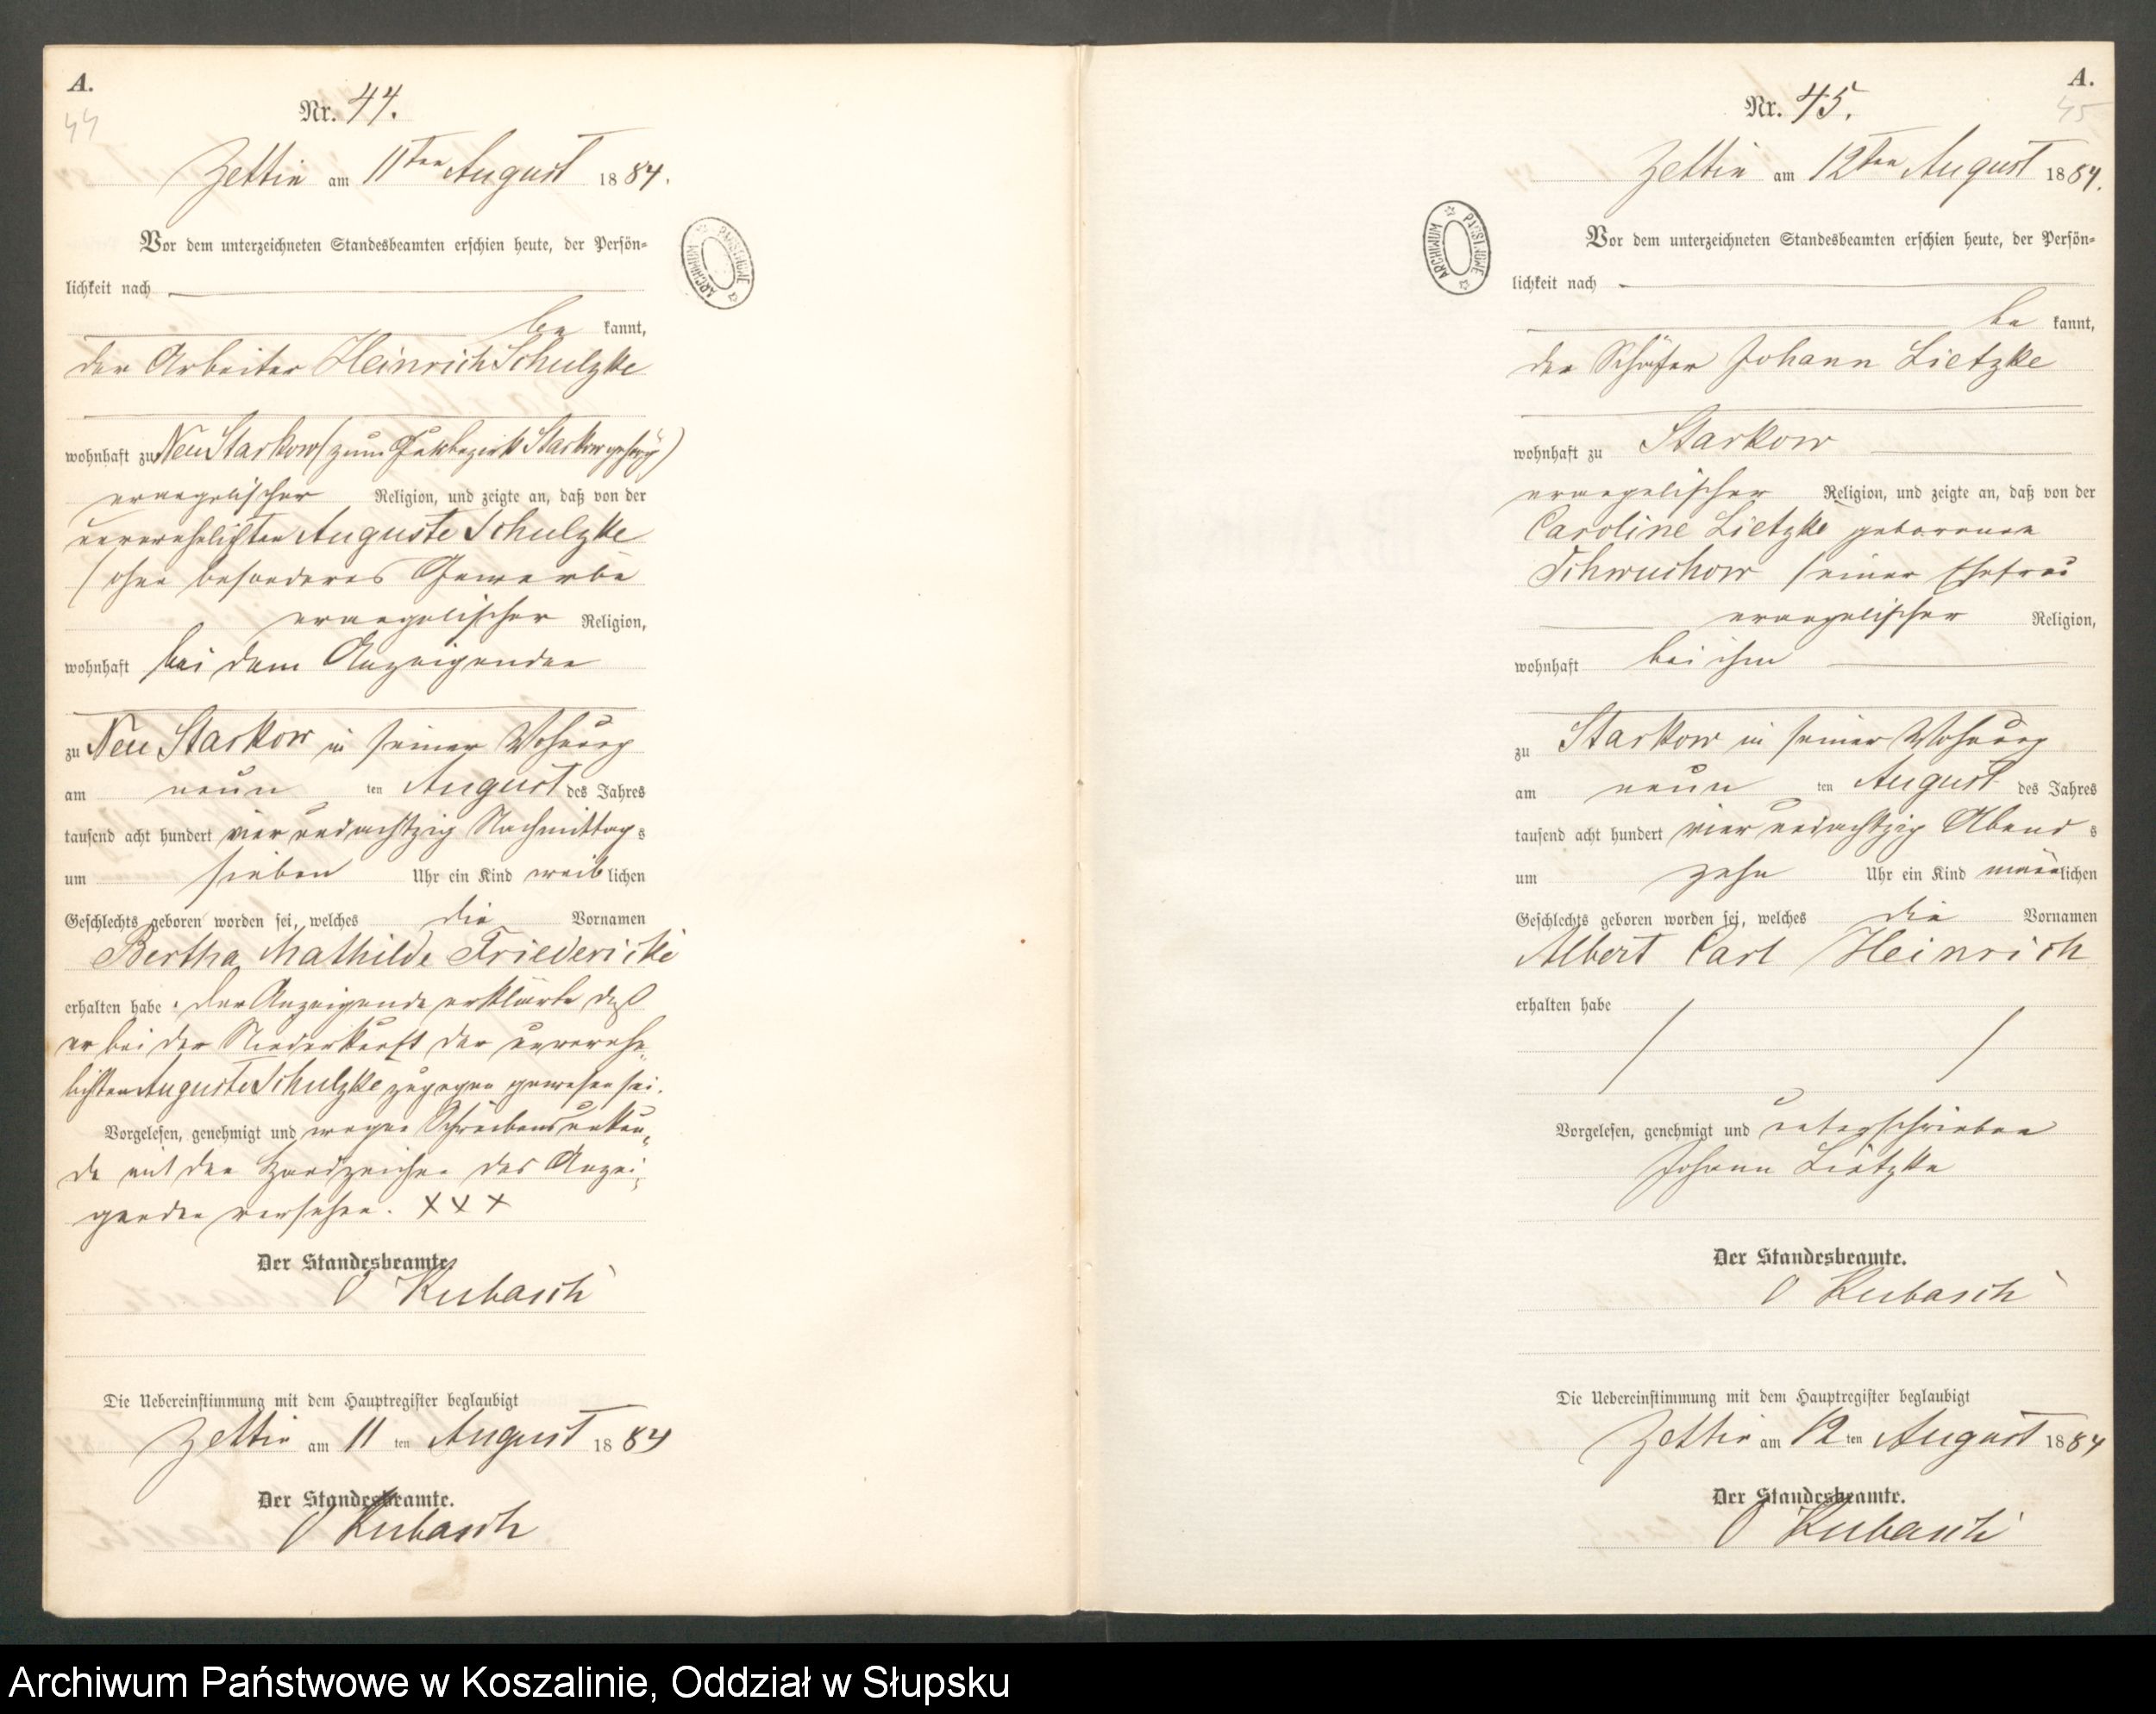 A.
44
Nr. 44.
Zettin am 11ten August 1884.
Vor dem unterzeichneten Standesbeamten erschien heute, der Persön=
lichkeit nach
be kannt,
der Arbeiter Heinrich Schulzke
wohnhaft zu Neu Starkow (zum Gutsbezirk Starkow gehörig)
evangelischer Religion, und zeigte an, daß von der
unverehelichten Auguste Schulzke
(ohne besonderes Gewerbe
evangelischer Religion,
wohnhaft bei dem Anzeigenden
zu Neu Starkow in seiner Wohnung
am neun ten August des Jahres
tausend acht hundert vier und achtzig Nachmittags
um sieben Uhr ein Kind weiblichen
Geschlechts geboren worden sei, welches die Vornamen
Bertha Mathilde Friedericke
erhalten habe. Der Anzeigende erklärte daß
er bei der Niederkunft der unverehe„
lichten Auguste Schulzke zugegen gewesen sei.
Vorgelesen, genehmigt und wegen Schreibensunkun„
de mit den Handzeichen des Anzei„
genden versehen. XXX
Der Standesbeamte.
O Kubasch
Die Uebereinstimmung mit dem Hauptregister beglaubigt
Zettin am 11 ten August 1884
Der Standesbeamte.
O Kubasch
ARCHIWUM PAŃSTWOWE
A.
45
Nr. 45.
Zettin am 12ten August 1884.
Vor dem unterzeichneten Standesbeamten erschien heute, der Persön=
lichkeit nach
be kannt,
der Schäfer Johann Lietzke
wohnhaft zu Starkow
evangelischer Religion, und zeigte an, daß von der
Caroline Lietzke geborenen
Schwuchow seiner Ehefrau
evangelischer Religion,
wohnhaft bei ihm
zu Starkow in seiner Wohnung
am neun ten August des Jahres
tausend acht hundert vier und achtzig Abends
um zehn Uhr ein Kind männlichen
Geschlechts geboren worden sei, welches die Vornamen
Albert Carl Heinrich
erhalten habe
Vorgelesen, genehmigt und unterschrieben
Johann Lietzke
Der Standesbeamte.
O Kubasch
Die Uebereinstimmung mit dem Hauptregister beglaubigt
Zettin am 12 ten August 1884
Der Standesbeamte.
O Kubasch
ARCHIWUM PAŃSTWOWE
Archiwum Państwowe w Koszalinie, Oddział w Słupsku